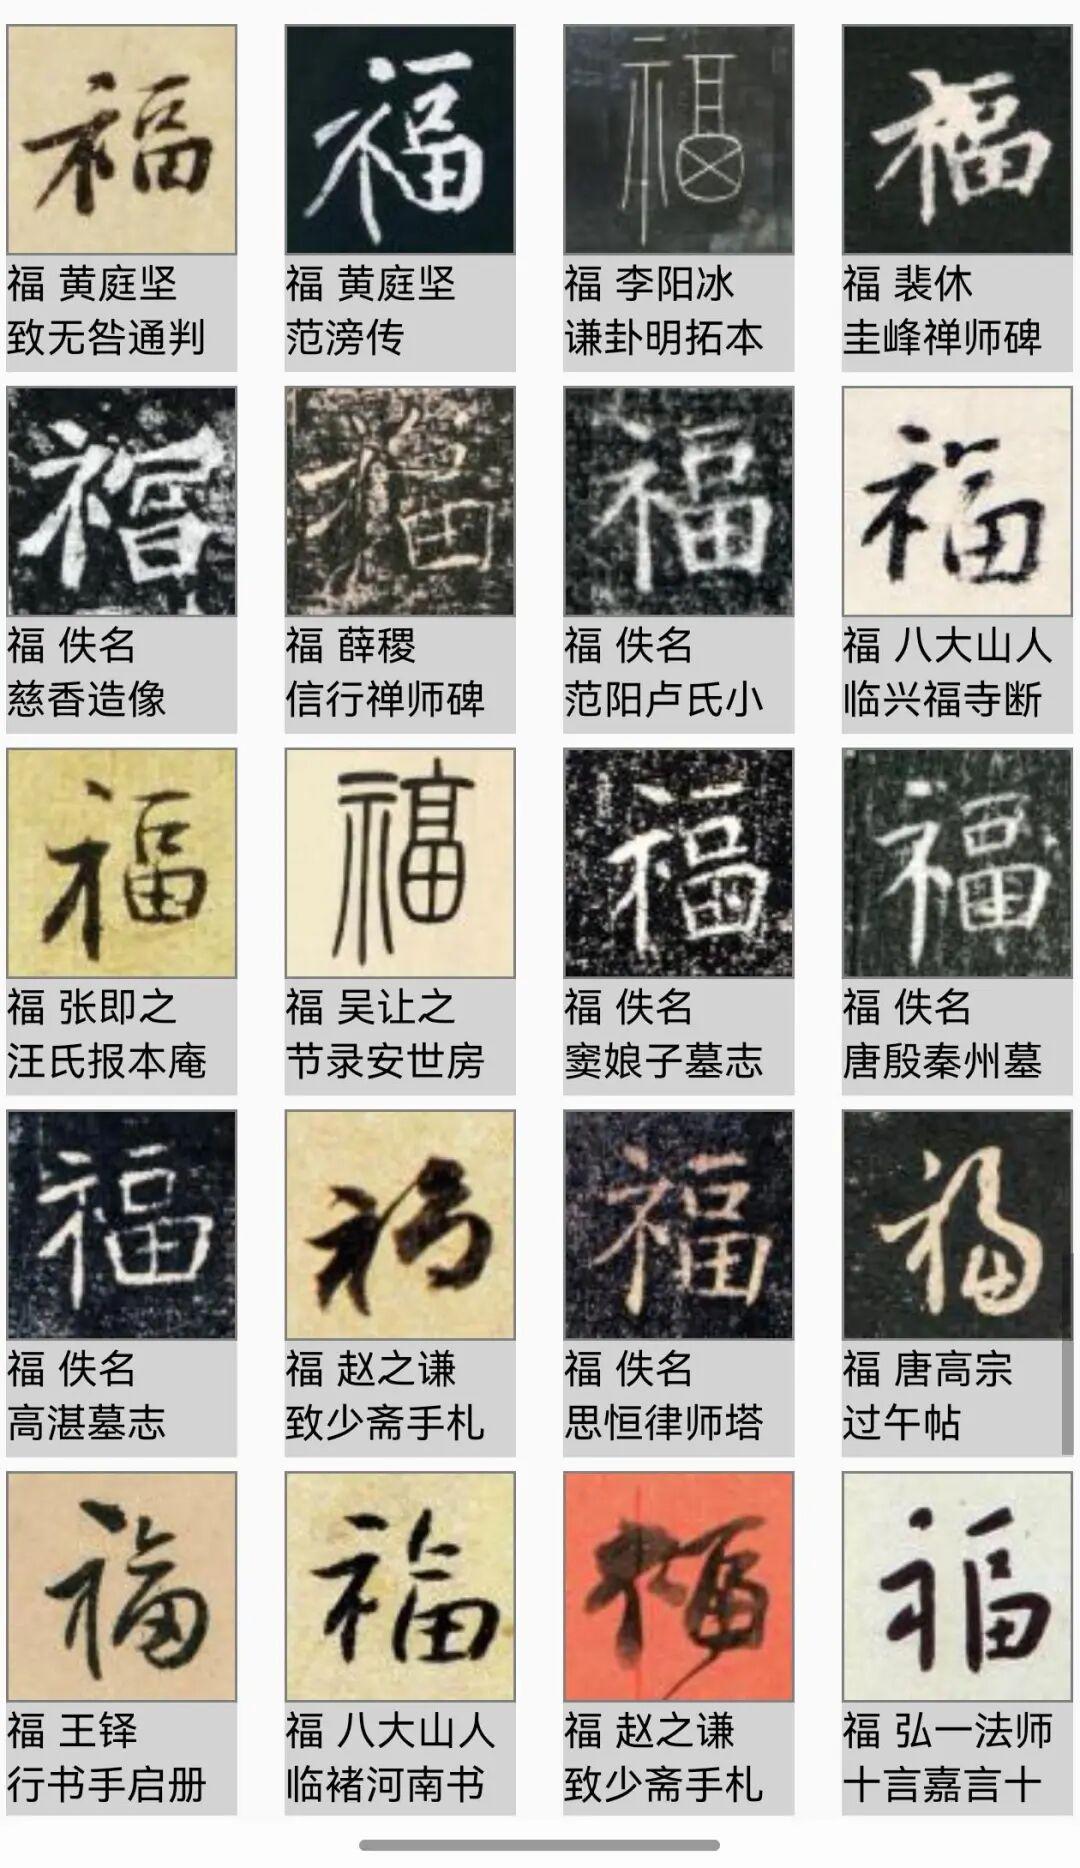 福 福 福 福
福 黄庭坚
致无咎通判
福 黄庭坚
范滂传
福 李阳冰
谦卦明拓本
福 裴休
圭峰禅师碑
福 福 福 福
福 佚名
慈香造像
福 薛稷
信行禅师碑
福 佚名
范阳卢氏小
福 八大山人
临兴福寺断
福 福 福 福
福 张即之
汪氏报本庵
福 吴让之
节录安世房
福 佚名
窦娘子墓志
福 佚名
唐殷秦州墓
福 福 福 福
福 佚名
高湛墓志
福 赵之谦
致少斋手札
福 佚名
思恒律师塔
福 唐高宗
过午帖
福 福 福 福
福 王铎
行书手启册
福 八大山人
临褚河南书
福 赵之谦
致少斋手札
福 弘一法师
十言嘉言十